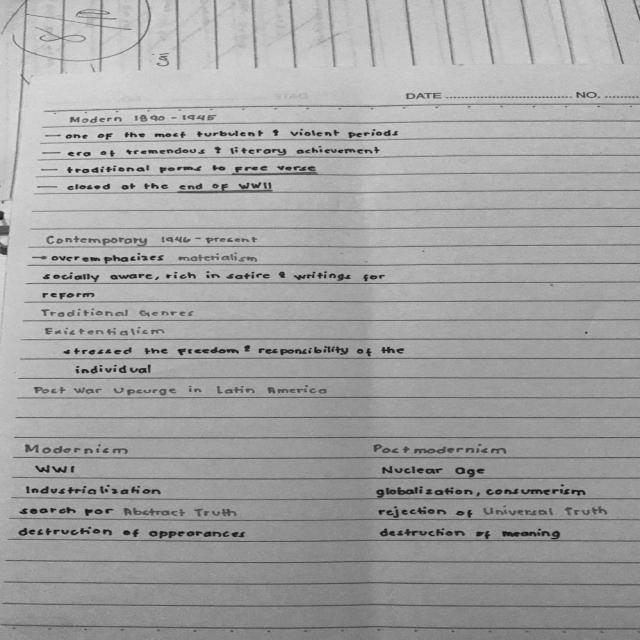 DATE ........................ NO. ........
Modern 1890 - 1945
— one of the most turbulent & violent periods
— era of tremendous & literary achievement
— traditional forms to free verse
— closed at the end of WWII
Contemporary 1946 - present
→ overemphasizes materialism
socially aware, rich in satire & writings for
reform
Traditional Genres
Existentialism
stressed the freedom & responsibility of the
individual
Post War Upsurge in Latin America
Modernism Postmodernism
WWI Nuclear Age
Industrialization globalization, consumerism
search for Abstract Truth rejection of Universal Truth
destruction of appearances destruction of meaning